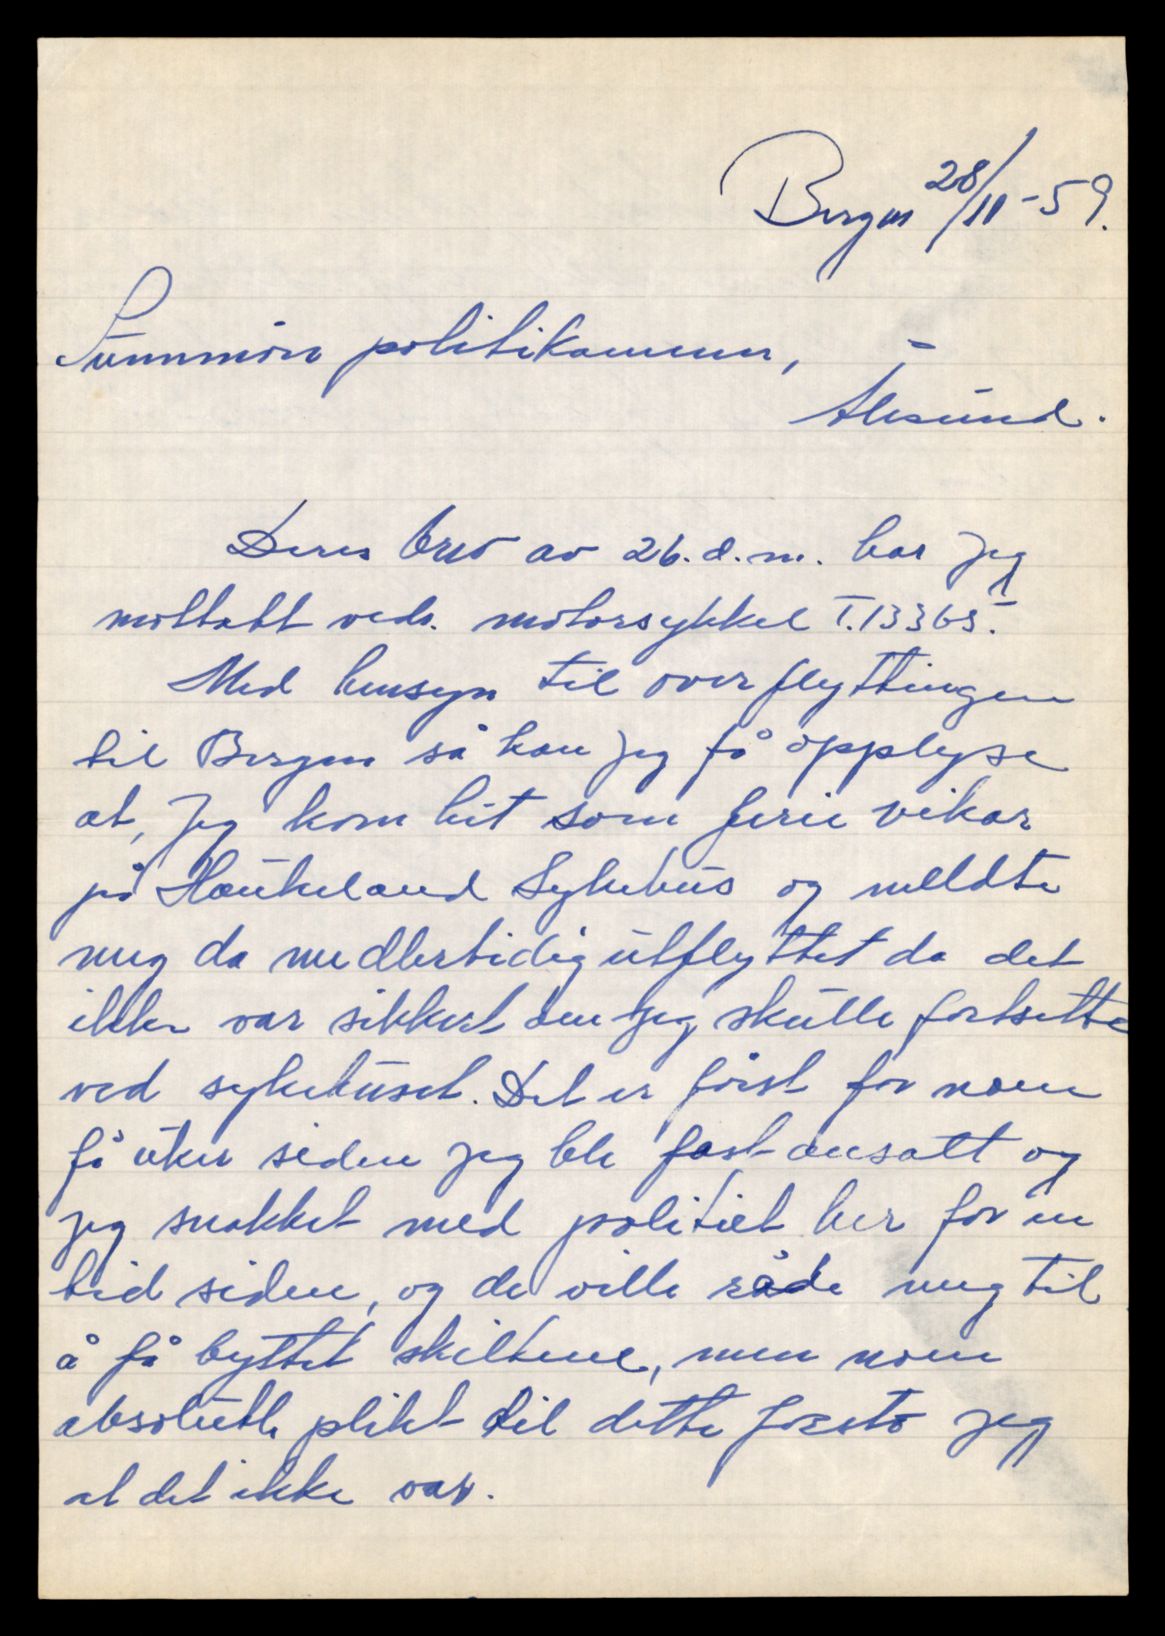 Bergen 28/11-59.
Sunnmøre politikammer, =
Ålesund.
Deres brev av 26.d.m. har jeg
mottatt vedr. motorsykkel T.13365.
Med hensyn til overflyttingen
til Bergen så kan jeg få opplyse
at, jeg kom hit som ferie vikar
på Haukeland Sykehus og melldte
meg da medlertidig utflyttet da det
ikke var sikkert om jeg skulle fortsette
ved sykehuset. Det er først for noen
få uker siden jeg ble fast ansatt og
jeg snakket med politiet her for en
tid siden, og de ville råde meg til
å få byttet skiltene, men noen
absolutt plikt til dette forsto jeg
at det ikke var.